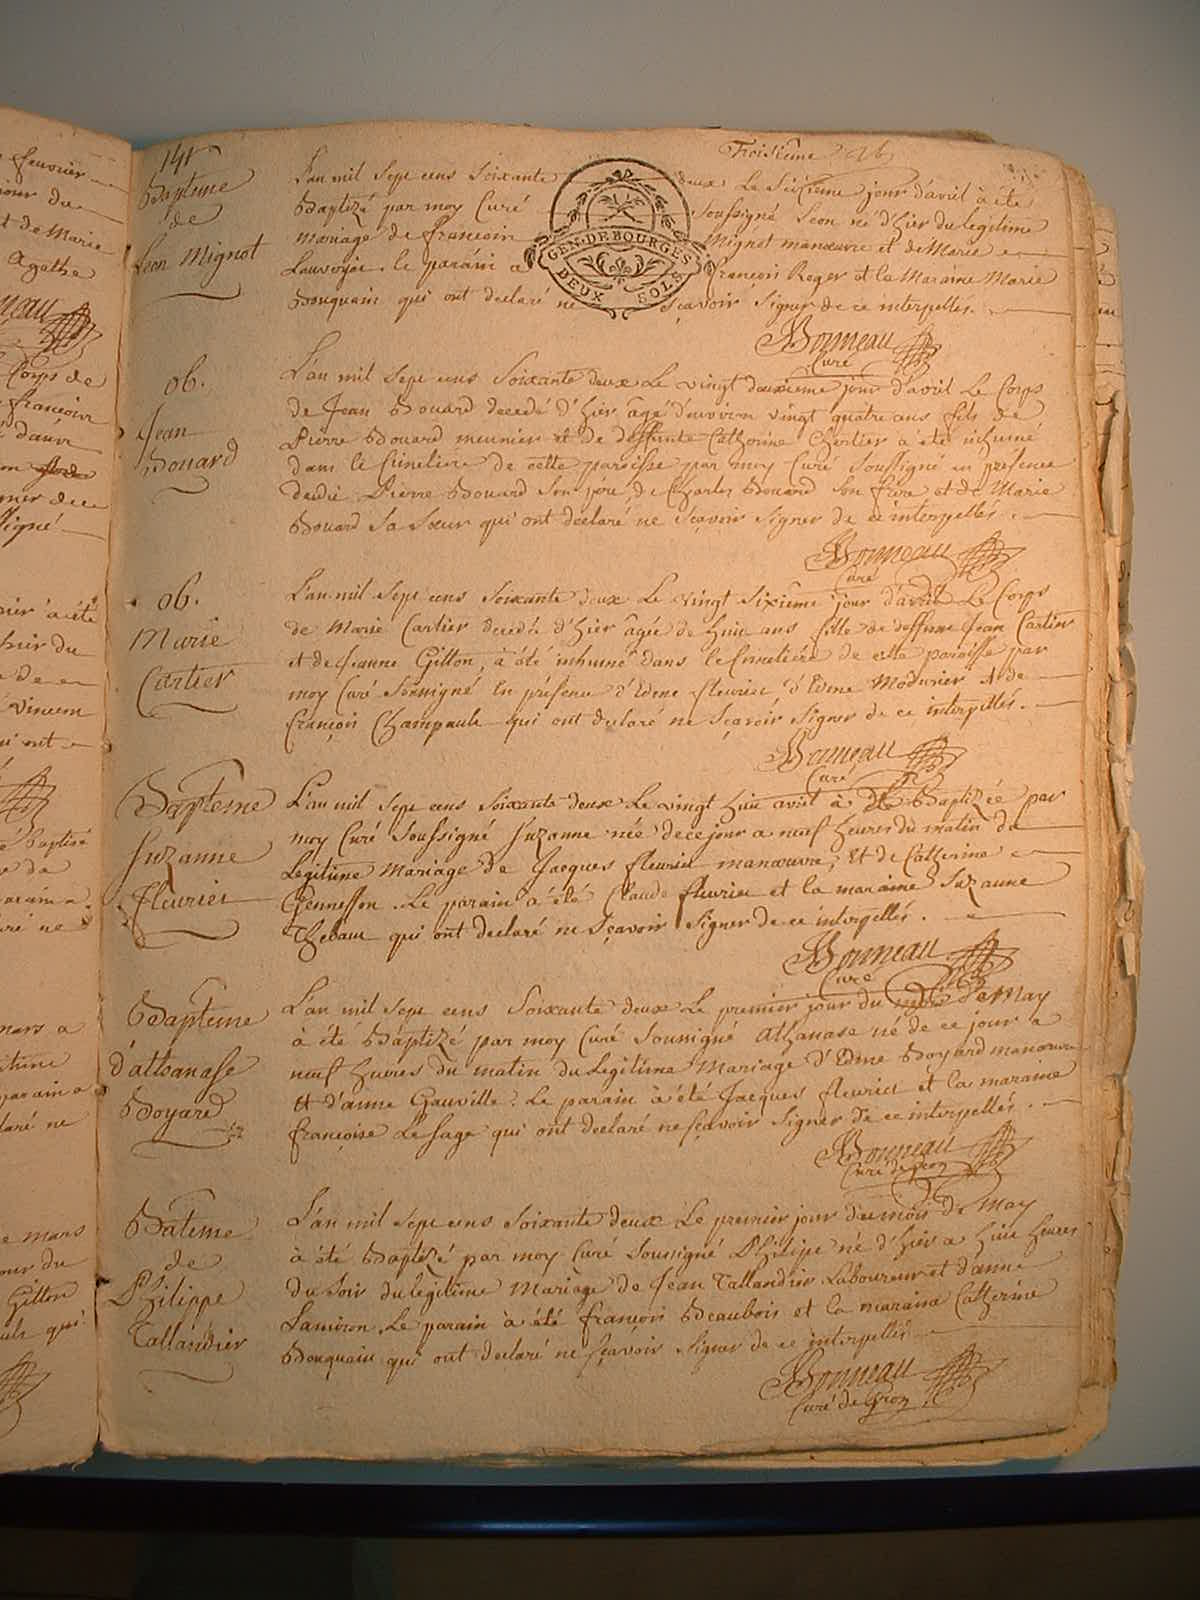 Troisieme
Bapteme
de
Leon Mignot
L'an mil sept cens soixante deux Le Seizieme jour d'avril à été
Baptizé par moy Curé soussigné Leon né d'hier du legitime
mariage de francoin Mignot manœuvre et de Marie
le parain a françois Roger et la Maraine Marie
Bouquain qui ont declaré ne sçavoir signer de ce interpellés.
GEN. DE BOURGES
DEUX SOLS
Bonneau
Curé
ob.
Jean
Bouard
L'an mil sept cens Soixante deux Le vingt deuxieme jour d'avril Le Corps
de Jean Bouard decedé d'hier âgé d'environ vingt quatre ans fils de
Pierre Bouard meunier et de deffunte Catherine Chertier a été inhumé
dans le Cimetiere de cette paroisse par moy Curé soussigné en présence
dudit Pierre Bouard Son père, de Charles Bouard Son frere et de Marie
Bouard Sa Sœur qui ont declaré ne sçavoir signer de ce interpellés.
Bonneau
Curé
ob.
Marie
Cartier
L'an mil sept cens soixante deux Le vingt sixieme jour d'avril Le Corps
de Marie Cartier decedée d'hier âgée de huit ans fille de deffunt Jean Cartier
et de Jeanne Gitton, à été inhumé dans le Cimetiére de cette paroisse par
moy Curé Soussigné en présence d'Edme fleurier, d'Edme Modurier et de
françois Champault qui ont declaré ne sçavoir signer de ce interpellés.
Bonneau
Curé
Bapteme
Suzanne
fleurier
L'an mil sept cens soixante deux Le vingt huit avril à été Baptizée par
moy Curé Soussigné Suzanne née de ce jour a neuf heures du matin du
Legitime Mariage de Jacques fleurier manœuvre, et de Catherine
Gennesson. Le parain à été Claude fleurier et la maraine Suzanne
Thebaut qui ont declaré ne sçavoir signer de ce interpellés.
Bonneau
Curé
Bapteme
d'athanase
Boyard
L'an mil sept cens Soixante deux Le premier jour du mois de May
à été Baptizé par moy Curé Soussigné Athanase né de ce jour a
neuf heures du matin du Legitime Mariage d'Edme Boyard manœuvre
et d'anne Gauville. Le parain à été Jacques fleurier et la maraine
françoise Le Sage qui ont declaré ne sçavoir signer de ce interpellés.
Bonneau
Curé de Gron
Bateme
de
Philippe
Tallandier
L'an mil sept cens Soixante deux Le premier jour du mois de May
à été Baptizé par moy Curé Soussigné Philipe né d'hier a huit heures
du soir du legitime Mariage de Jean Tallandier Laboureur et d'anne
Lamiron. Le parain à été françois Beaubois et la maraine Catherine
Bouquain qui ont declaré ne sçavoir signer de ce interpellés
Bonneau
Curé de Gron